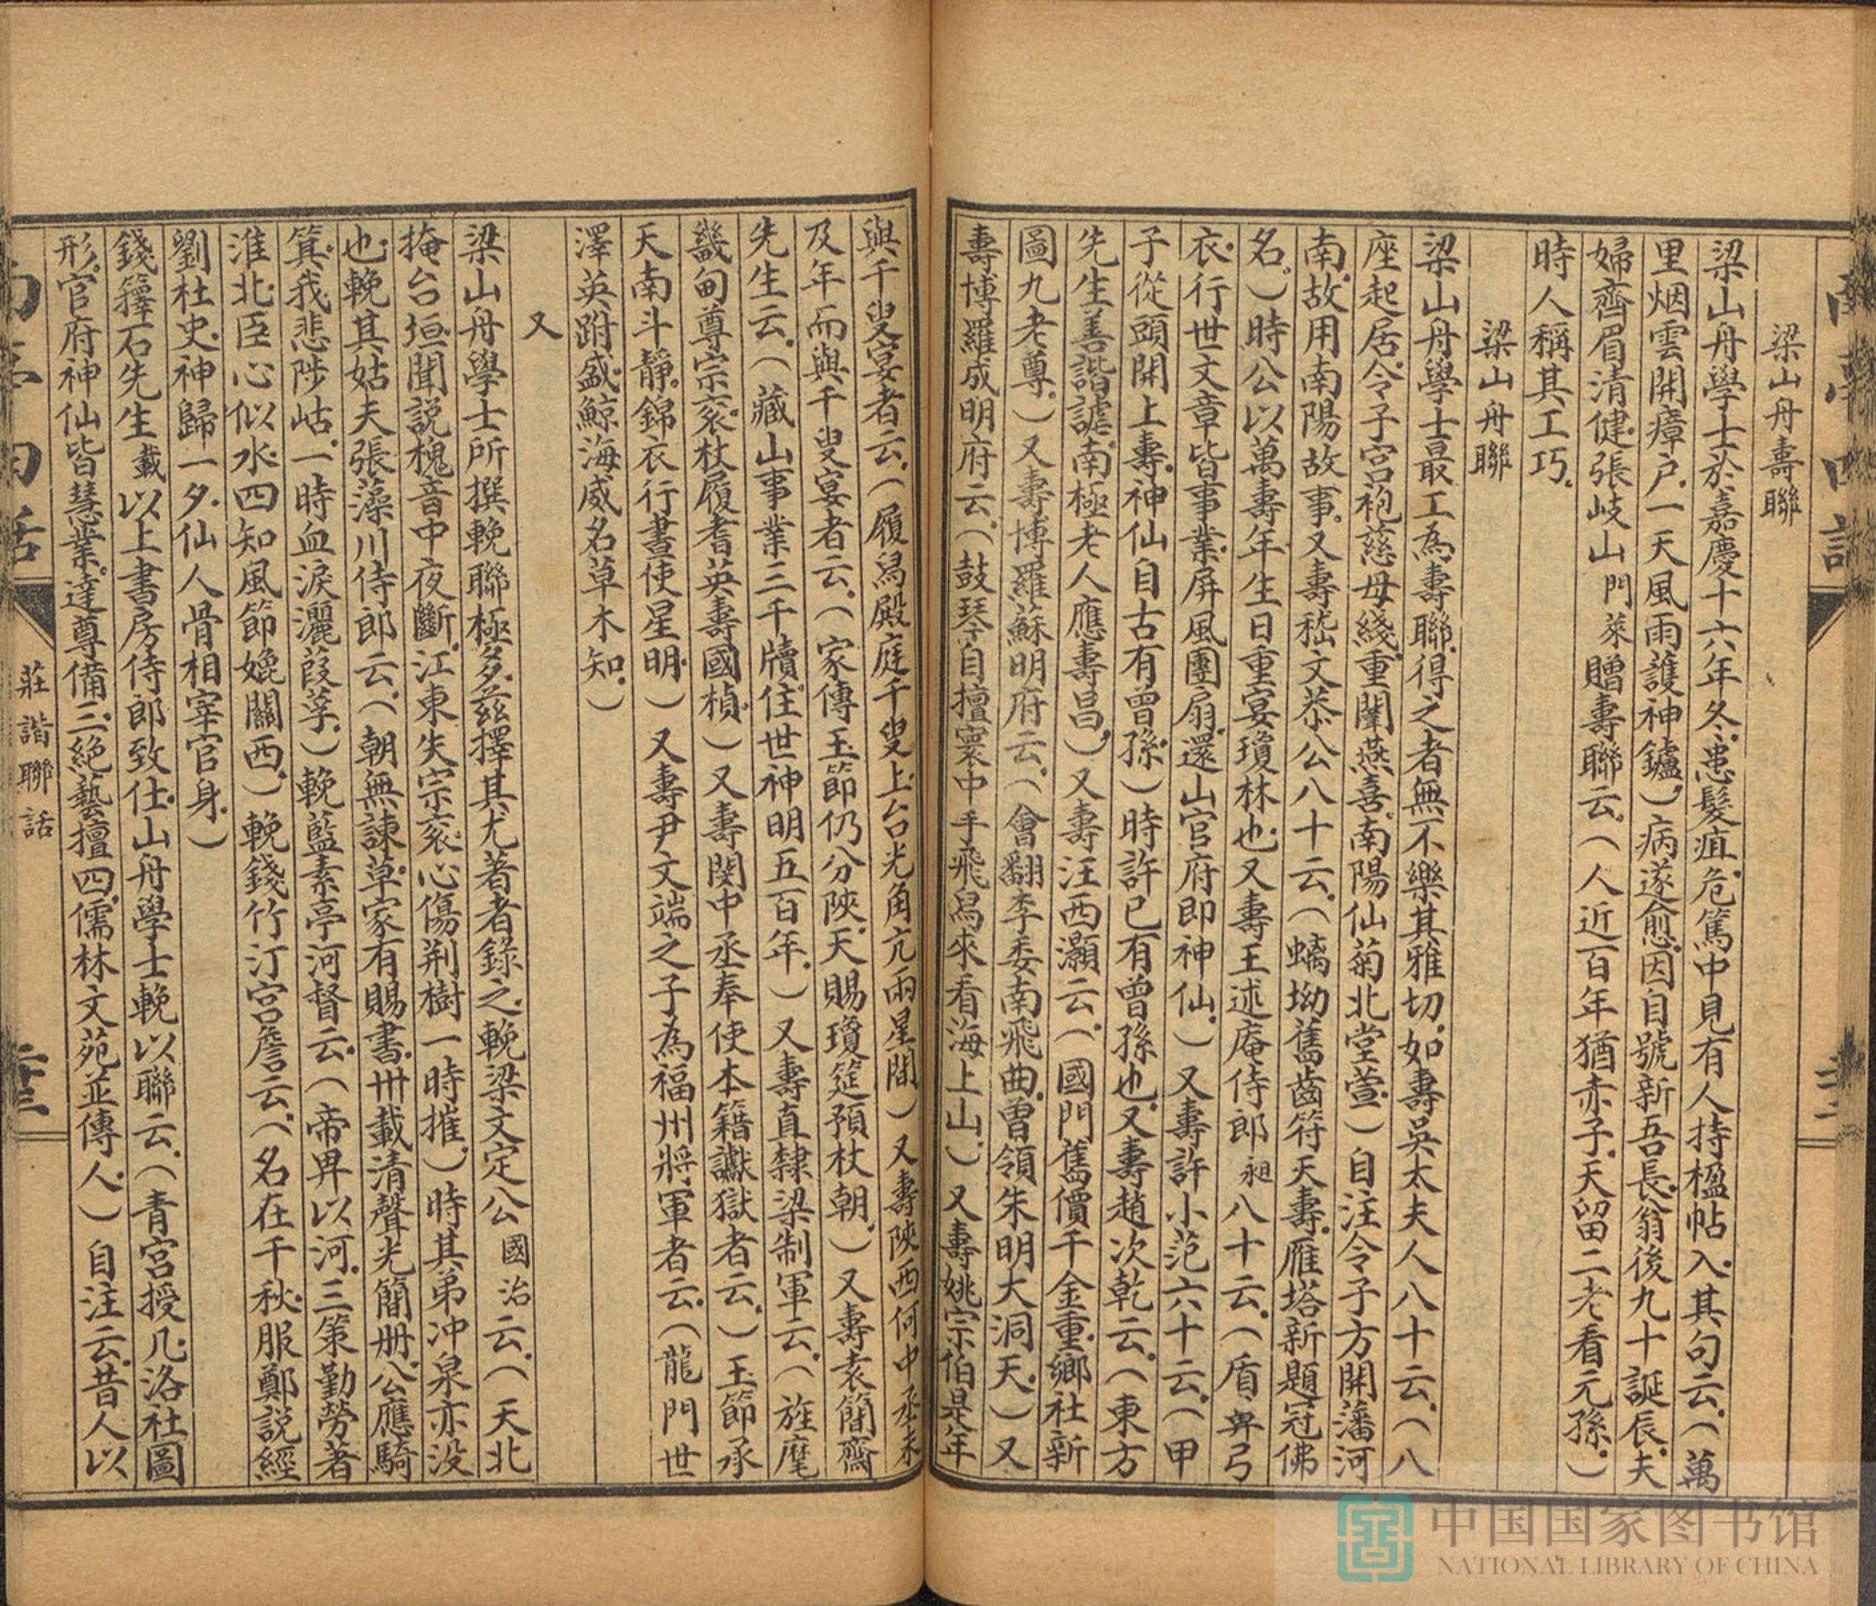 梁山舟壽聯
梁山舟學士於嘉慶十六年冬患髮疽危篤中見有人持楹帖入其句云（萬
里烟雲開瘴戶一天風雨護神鑪）病遂愈因自號新吾長翁後九十誕辰夫
婦齊眉清健張岐山門萊贈壽聯云（人近百年猶赤子天留二老看元孫）
時人稱其工巧
梁山舟聯
梁山舟學士最工為壽聯得之者無不樂其雅切如壽吳太夫人八十云（八
座起居令子宮袍慈母綫重闈燕喜南陽仙菊北堂萱）自注令子方開藩河
南故用南陽故事又壽嵇文恭公八十云（螭坳舊齒符天壽雁塔新題冠佛
名）時公以萬壽年生日重宴瓊林也又壽王述庵侍郎昶八十云（盾鼻弓
衣行世文章皆事業屏風團扇還山官府即神仙）又壽許小范六十云（甲
子從頭開上壽神仙自古有曾孫）時許已有曾孫也又壽趙次乾云（東方
先生善諧謔南極老人應壽昌）又壽汪西灝云（國門舊價千金重鄉社新
圖九老尊）又壽博羅蘇明府云（會翻李委南飛曲曾領朱明大洞天）又
壽博羅成明府云（鼓琴自擅寰中手飛舄來看海上山）又壽姚宗伯是年
與千叟宴者云（履舄殿庭千叟上台光角亢兩星間）又壽陝西何中丞未
及年而與千叟宴者云（家傳玉節仍分陝天賜瓊筵預杖朝）又壽袁簡齋
先生云（藏山事業三千牘住世神明五百年）又壽直隸梁制軍云（旌麾
畿甸尊宗衮杖履耆英壽國楨）又壽閔中丞奉使本籍讞獄者云）玉節承
天南斗靜錦衣行晝使星明）又壽尹文端之子為福州將軍者云（龍門世
澤英跗盛鯨海威名草木知）
又
梁山舟學士所撰輓聯極多茲擇其尤著者錄之輓梁文定公國治云（天北
掩台垣聞說槐音中夜斷江東失宗衮心傷荊樹一時摧）時其弟冲泉亦沒
也輓其姑夫張藻川侍郎云（朝無諫草家有賜書卅載清聲光簡册公應騎
箕我悲陟岵一時血淚灑葭莩）輓藍素亭河督云（帝畀以河三策勤勞著
淮北臣心似水四知風節媲關西）輓錢竹汀宮詹云（名在千秋服鄭說經
劉杜史神歸一夕仙人骨相宰官身）
錢籜石先生載以上書房侍郎致仕山舟學士輓以聯云（青宮授几洛社圖
形官府神仙皆慧業達尊備三絕藝擅四儒林文苑並傳人）自注云昔人以
莊諧聯話
中国国家图书馆
NATIONAL LIBRARY OF CHINA